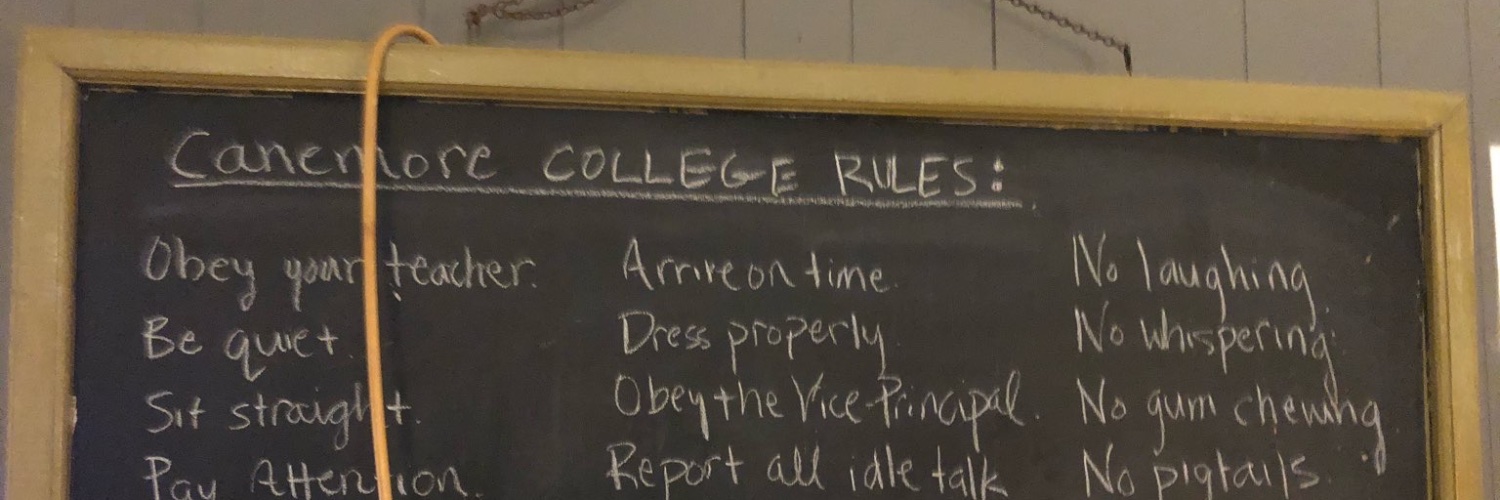 Canemore COLLEGE RULES:
Obey your teacher.
Be quiet.
Sit straight.
Pay Attention.
Arrive on time.
Dress properly.
Obey the Vice-Principal.
Report all idle talk
No laughing.
No whispering.
No gum chewing.
No pigtails.